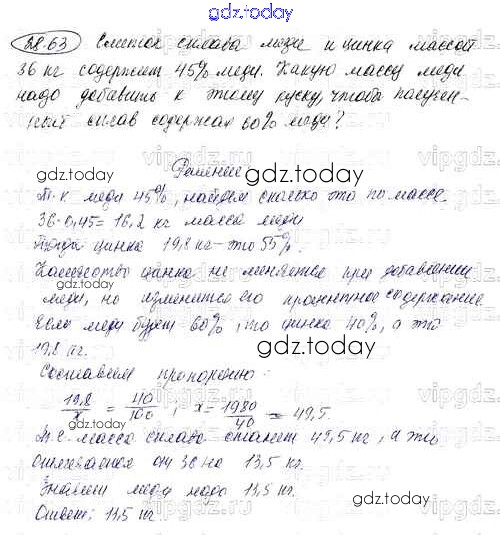 gdz.today
28.63 Слиток сплава меди и цинка массой
36 кг содержит 45% меди. Какую массу меди
надо добавить к этому куску, чтобы получен-
ный сплав содержал 60% меди?
gdz.today
Решение
gdz.today
Т.к меди 45%, найдем сколько это по массе
36·0,45=16,2 кг масса меди
Тогда цинка 19,8 кг - это 55%.
Количество цинка не меняется при добавлении
меди, но изменится его процентное содержание
Если меди будет 60%, то цинка 40%, а это
19,8 кг.
gdz.today
Составим пропорцию:
19,8/x = 40/100 ; x = 1980/40 = 49,5.
gdz.today
Т.е. масса сплава станет 49,5 кг, а это
отличается от 36 на 13,5 кг.
Значит меди надо 13,5 кг.
gdz.today
Ответ: 13,5 кг
gdz.today